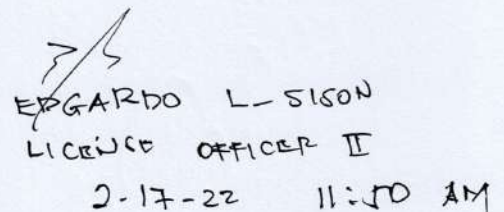 EDGARDO L- SISON
LICENSE OFFICER II
2-17-22 11:50 AM